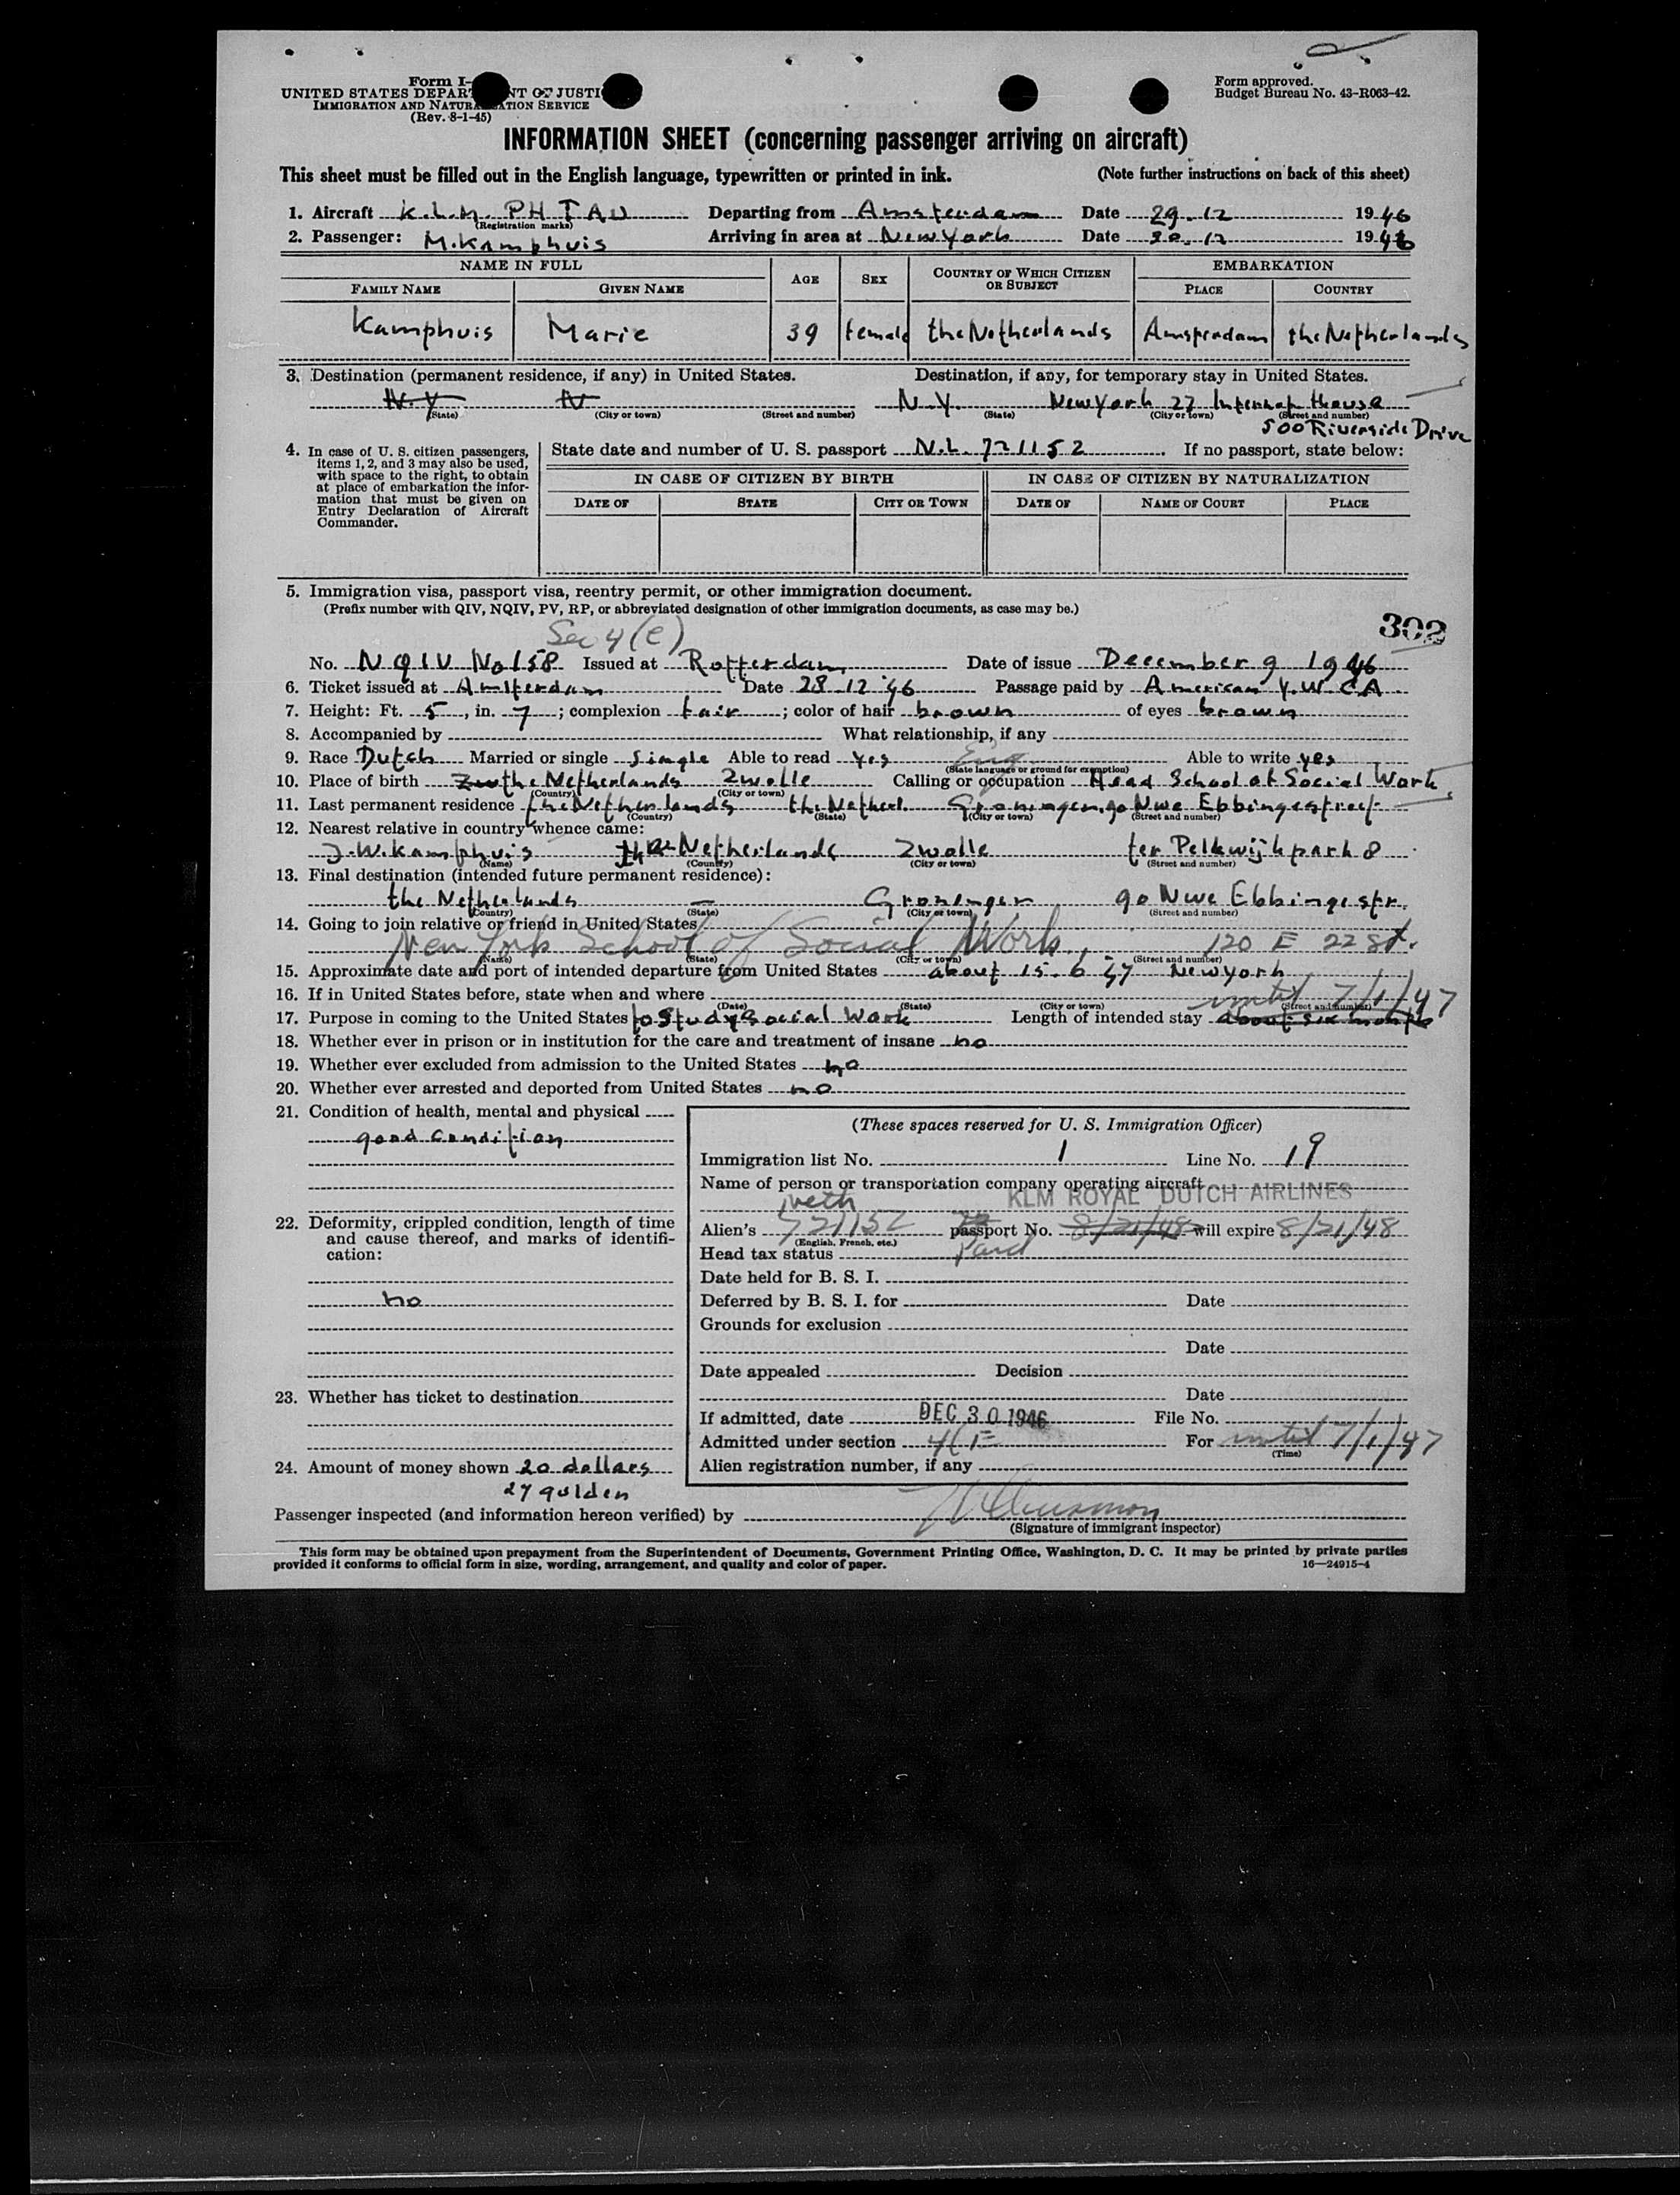 Form I-
UNITED STATES DEPAR NT OF JUSTI
IMMIGRATION AND NATURA ATION SERVICE
(Rev. 8-1-45)
Form approved.
Budget Bureau No. 43-R063-42.
INFORMATION SHEET (concerning passenger arriving on aircraft)
This sheet must be filled out in the English language, typewritten or printed in ink. (Note further instructions on back of this sheet)
1. Aircraft K.L.M. PH TAU Departing from Amsterdam Date 29-12 1946
(Registration marks)
2. Passenger: M. Kamphuis Arriving in area at New York Date 30-12 1946
NAME IN FULL AGE SEX COUNTRY OF WHICH CITIZEN OR SUBJECT EMBARKATION
FAMILY NAME GIVEN NAME PLACE COUNTRY
Kamphuis Marie 39 female the Netherlands Amsterdam the Netherlands
3. Destination (permanent residence, if any) in United States. Destination, if any, for temporary stay in United States.
N.Y. N N.Y. New York 27 Internat House
(State) (City or town) (Street and number) (State) (City or town) (Street and number)
500 Riverside Drive
4. In case of U. S. citizen passengers, items 1, 2, and 3 may also be used, with space to the right, to obtain at place of embarkation the information that must be given on Entry Declaration of Aircraft Commander.
State date and number of U. S. passport N.L. 721152. If no passport, state below:
IN CASE OF CITIZEN BY BIRTH IN CASE OF CITIZEN BY NATURALIZATION
DATE OF STATE CITY OR TOWN DATE OF NAME OF COURT PLACE
5. Immigration visa, passport visa, reentry permit, or other immigration document.
(Prefix number with QIV, NQIV, PV, RP, or abbreviated designation of other immigration documents, as case may be.)
302
Sec 4 (e)
No. NQIV No 158 Issued at Rotterdam Date of issue December 9 1946
6. Ticket issued at Amsterdam Date 28 12 '46 Passage paid by American Y.W.C.A.
7. Height: Ft. 5, in. 7; complexion fair; color of hair brown of eyes brown
8. Accompanied by What relationship, if any
9. Race Dutch Married or single single Able to read yes Eng Able to write yes
(State language or ground for exemption)
10. Place of birth the Netherlands Zwolle Calling or occupation Head School of Social Work
(Country) (City or town)
11. Last permanent residence the Netherlands the Netherl. Groningen 90 Nwe Ebbingestreet
(Country) (State) (City or town) (Street and number)
12. Nearest relative in country whence came:
J.W. Kamphuis the Netherlands Zwolle ter Pelkwijkpark 8
(Name) (Country) (City or town) (Street and number)
13. Final destination (intended future permanent residence):
the Netherlands — Groningen 90 Nwe Ebbingestr.
(Country) (State) (City or town) (Street and number)
14. Going to join relative or friend in United States
New York School of Social Work, 120 E 22 St.
(Name) (State) (City or town) (Street and number)
15. Approximate date and port of intended departure from United States about 15-6 '47 New York
16. If in United States before, state when and where
(Date) (State) (City or town) (Street and number)
until 7/1/47
17. Purpose in coming to the United States to study Social Work Length of intended stay about six months
18. Whether ever in prison or in institution for the care and treatment of insane no
19. Whether ever excluded from admission to the United States no
20. Whether ever arrested and deported from United States no
21. Condition of health, mental and physical
good condition
22. Deformity, crippled condition, length of time and cause thereof, and marks of identification:
no
23. Whether has ticket to destination
24. Amount of money shown 20 dollars
27 gulden
(These spaces reserved for U. S. Immigration Officer)
Immigration list No. 1 Line No. 19
Name of person or transportation company operating aircraft
KLM ROYAL DUTCH AIRLINES
Neth
Alien's 721152 passport No. 8/21/48 will expire 8/21/48
(English, French, etc.)
Head tax status Paid
Date held for B. S. I.
Deferred by B. S. I. for Date
Grounds for exclusion
Date
Date appealed Decision
Date
If admitted, date DEC 30 1946 File No.
Admitted under section 4(E For until 7/1/47
(Time)
Alien registration number, if any
Passenger inspected (and information hereon verified) by
(Signature of immigrant inspector)
This form may be obtained upon prepayment from the Superintendent of Documents, Government Printing Office, Washington, D. C. It may be printed by private parties
provided it conforms to official form in size, wording, arrangement, and quality and color of paper. 16—24915-4